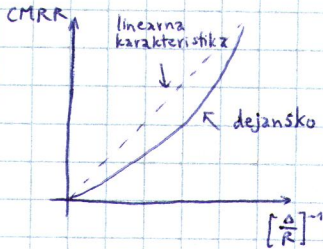 CMRR
linearna
karakteristika
dejansko
[Δ/R]⁻¹